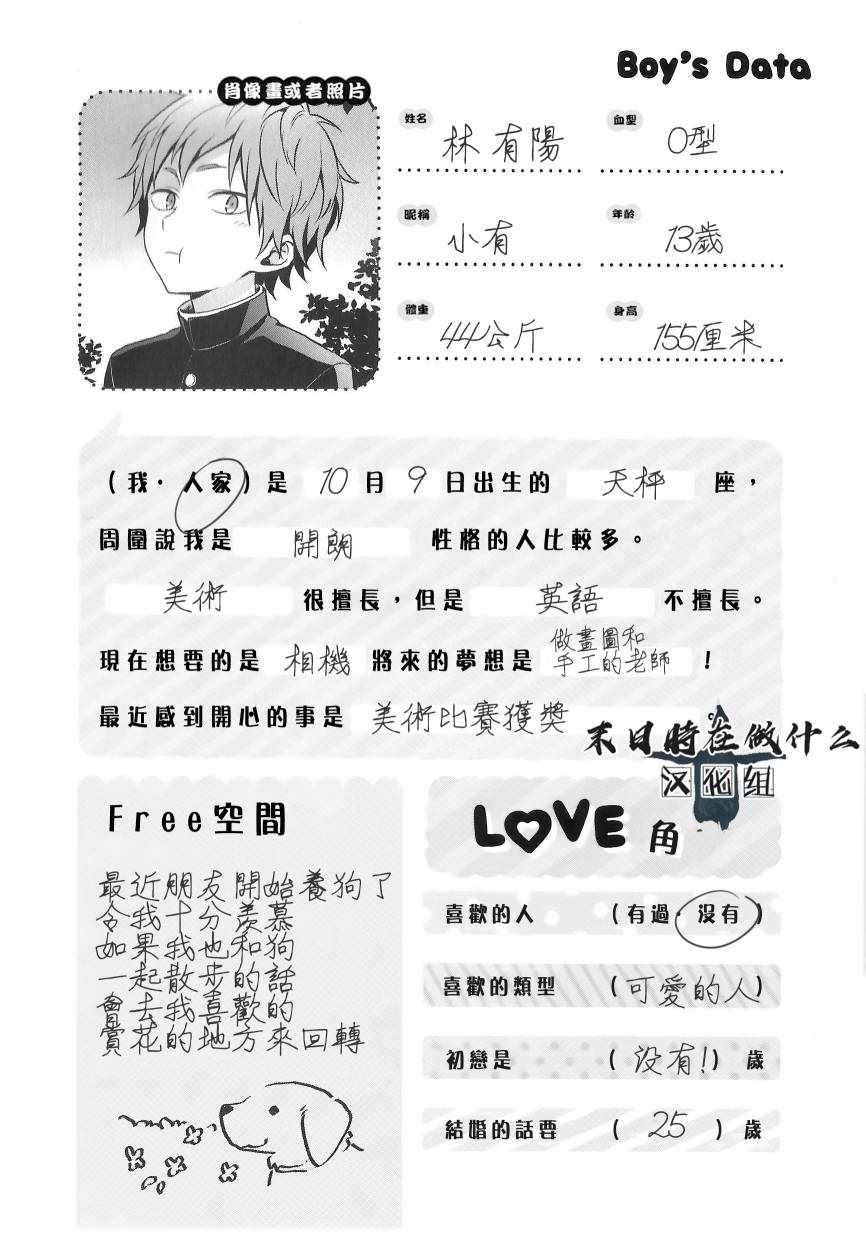 Boy's Data
肖像畫或者照片
姓名 林有陽
血型 O型
昵稱 小有
年齡 13歲
體重 44公斤
身高 155厘米
(我·人家)是 10 月 9 日出生的 天秤 座，
周圍說我是 開朗 性格的人比較多。
美術 很擅長，但是 英語 不擅長。
現在想要的是 相機 將來的夢想是 做畫圖和手工的老師！
最近感到開心的事是 美術比賽獲獎
末日時在做什么
汉化组
Free空間
最近朋友開始養狗了
令我十分羨慕
如果我也和狗
一起散步的話
會去我喜歡的
賞花的地方來回轉
LOVE角
喜歡的人 (有過·沒有)
喜歡的類型 (可愛的人)
初戀是 (没有!) 歲
結婚的話要 (25) 歲